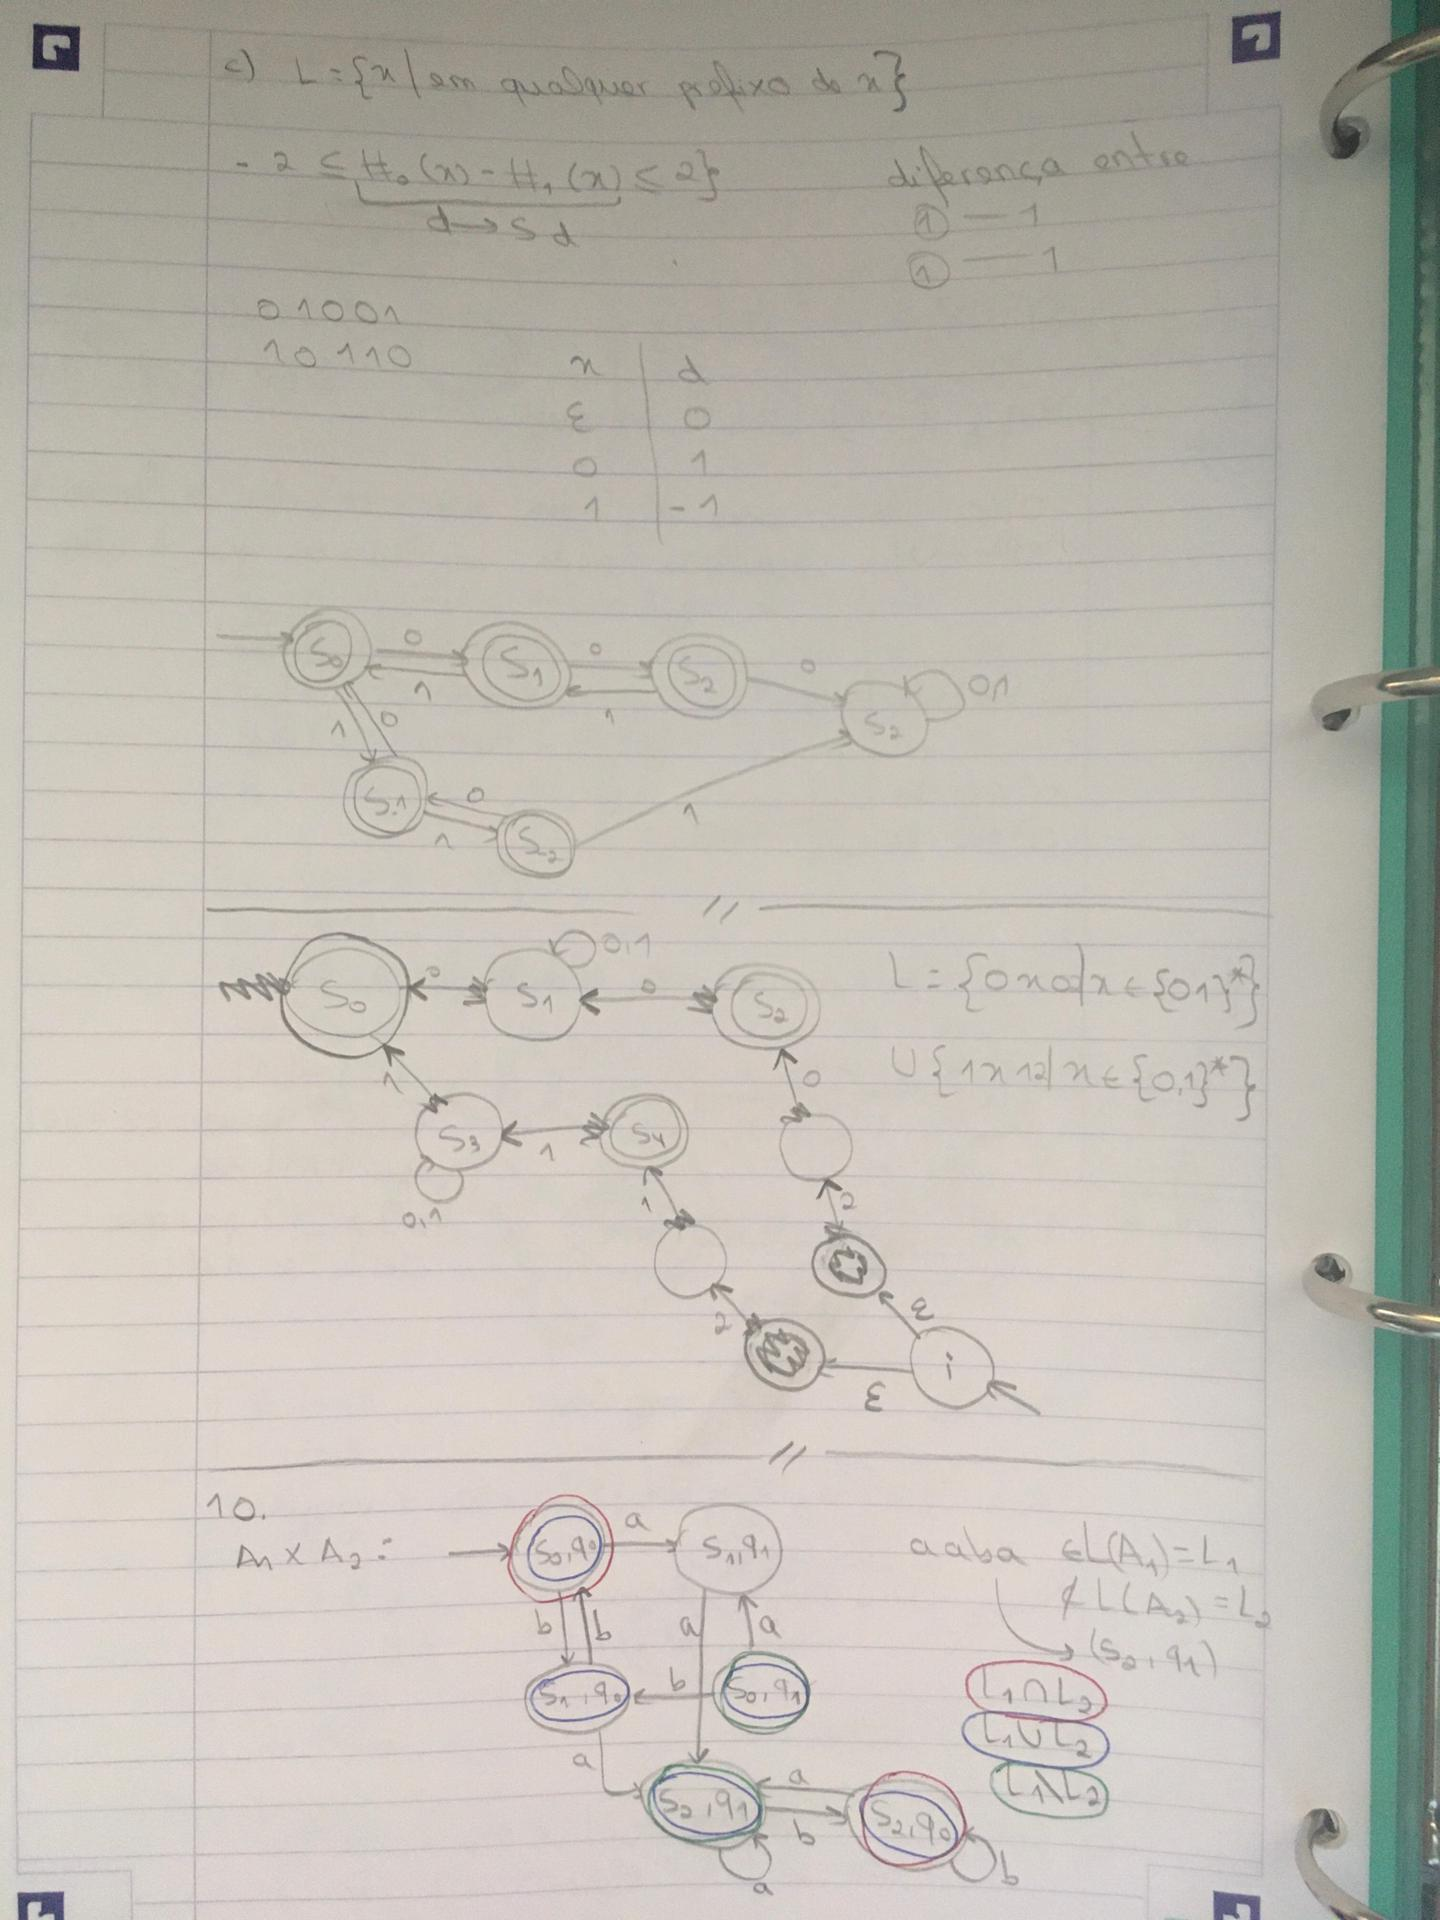 c) L = {x | em qualquer prefixo de x}
- 2 ≤ #₀(x) - #₁(x) ≤ 2}
d → S d
diferença entre
① — 1
① — 1
01001
10110
x | d
ε | 0
0 | 1
1 | -1
S₀ 0 1 S₁ 0 1 S₂ 0 S₂ 0,1
1 0
S-1 0 1 S-2 1
//
S₀ 0 S₁ 0,1 0 S₂
L = {0x0 | x ∈ {0,1}*}
∪ {1x12 | x ∈ {0,1}*}
1 0
S₃ 1 S₄
0,1 1 2
2 ε
ε i
//
10.
A₁ x A₂ : S₀,q₀ a S₁,q₁
b b a a
S₁,q₀ b S₀,q₁
a
S₂,q₁ a b S₂,q₀
a b
aaba ∈ L(A₁) = L₁
∉ L(A₂) = L₂
→ (S₂, q₁)
L₁ ∩ L₂
L₁ ∪ L₂
L₁ \ L₂